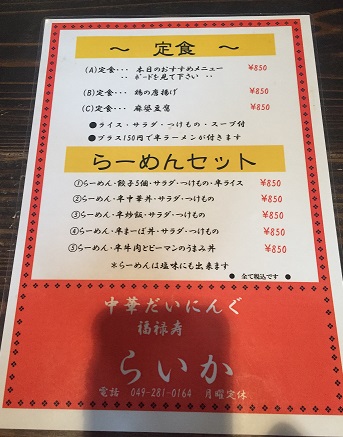 ～ 定食 ～
(A)定食･･･ 本日のおすすめメニュー ¥850
･･ ボードを見て下さい ･･
(B)定食･･･ 鶏の唐揚げ ¥850
(C)定食･･･ 麻婆豆腐 ¥850
●ライス・サラダ・つけもの・スープ付
●プラス150円で半ラーメンが付きます
らーめんセット
①らーめん・餃子5個・サラダ・つけもの・半ライス ¥850
②らーめん・半中華丼・サラダ・つけもの ¥850
③らーめん・半炒飯・サラダ・つけもの ¥850
④らーめん・半まーぼ丼・サラダ・つけもの ¥850
⑤らーめん・半牛肉とピーマンのうまみ丼 ¥850
＊らーめんは塩味にも出来ます
● 全て税込です ●
中華だいにんぐ
福禄寿
らいか
電話 049-281-0164 月曜定休